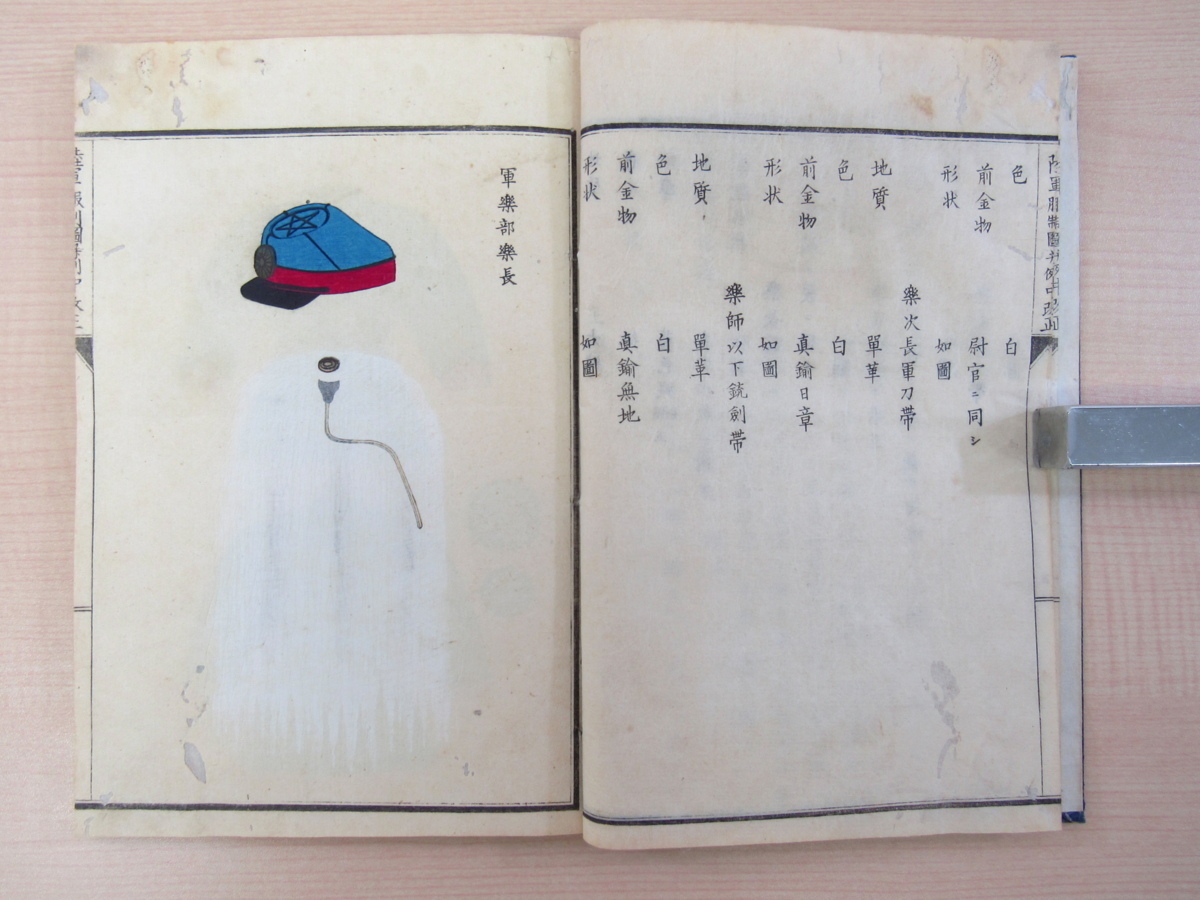 色 白
前金物 尉官ニ同シ
形状 如圖
樂次長軍刀帶
地質 單革
色 白
前金物 真鍮日章
形状 如圖
樂師以下銃劍帶
地質 單革
色 白
前金物 真鍮無地
形状 如圖
軍樂部樂長